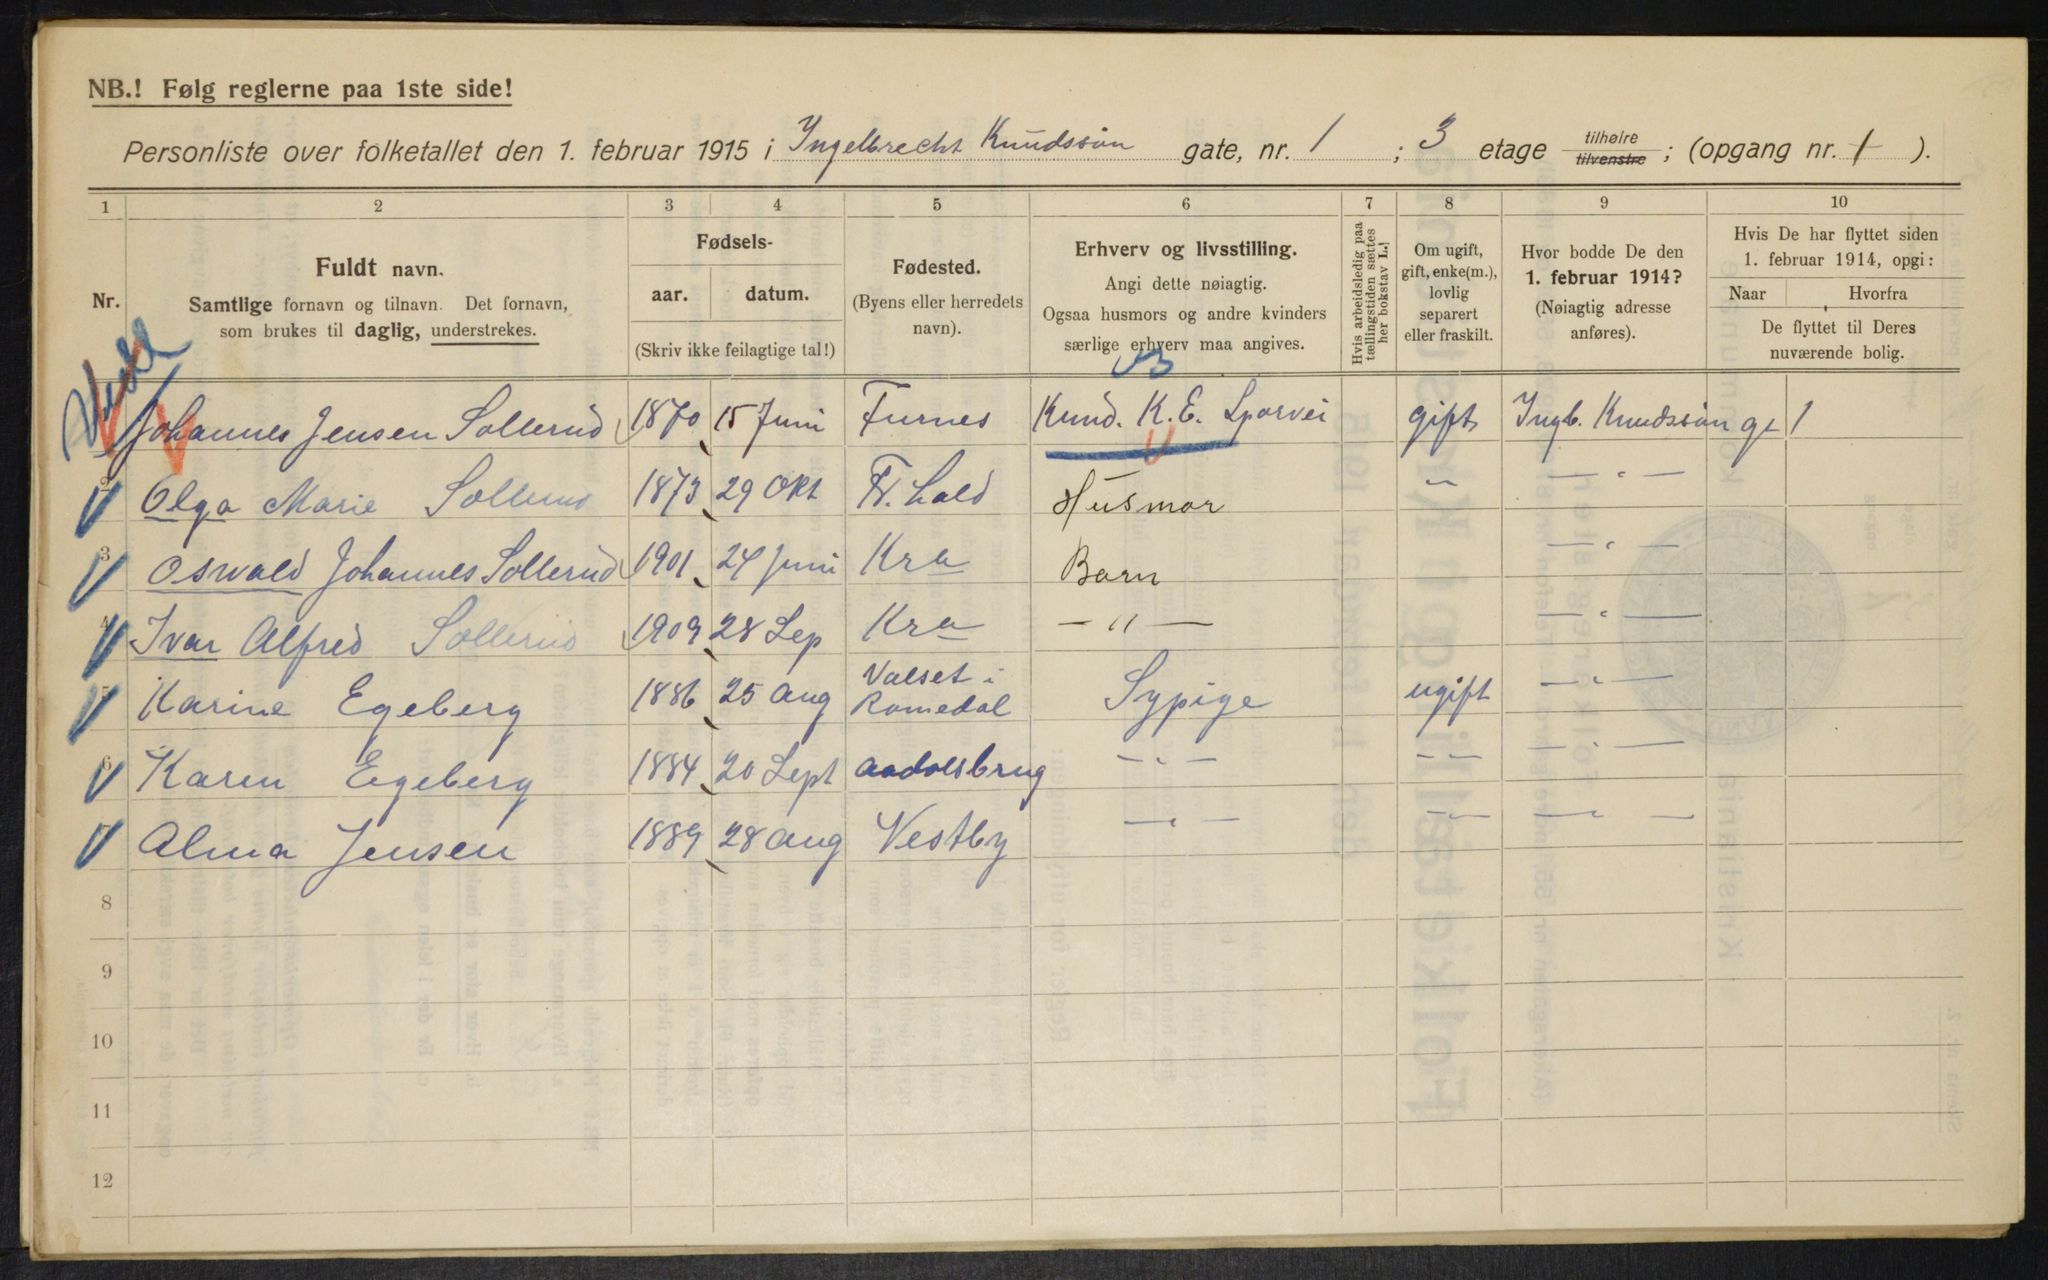 NB.! Følg reglerne paa 1ste side!
Personliste over folketallet den 1. februar 1915 i Ingelbrecht Knudssøn gate, nr. 1 ; 3 etage tilhøire tilvenstre ; (opgang nr. 1 ).
1 2 3 4 5 6 7 8 9 10
Nr.
Fuldt navn.
Samtlige fornavn og tilnavn. Det fornavn,
som brukes til daglig, understrekes.
Fødsels-
aar. datum.
(Skriv ikke feilagtige tal!)
Fødested.
(Byens eller herredets
navn).
Erhverv og livsstilling.
Angi dette nøiagtig.
Ogsaa husmors og andre kvinders
særlige erhverv maa angives.
Hvis arbeidsledig paa
tællingstiden sættes
her bokstav L.!
Om ugift,
gift, enke(m.),
lovlig
separert
eller fraskilt.
Hvor bodde De den
1. februar 1914?
(Nøiagtig adresse
anføres).
Hvis De har flyttet siden
1. februar 1914, opgi:
Naar Hvorfra
De flyttet til Deres
nuværende bolig.
Johannes Jensen Sollerud 1870 15 Juni Furnes K. E. Sporvei gift Ingb. Knudssøn gt 1
2 Olga Marie Sollerud 1873 29 Okt Fr. hald Husmor — " — — " —
3 Oswald Johannes Sollerud 1901 24 Juni Kra Barn — " —
4 Ivar Alfred Sollerud 1909 28 Sep Kra — " — — " —
5 Karine Egeberg 1886 25 Aug Valset i Romedal Sypige ugift — " —
6 Karen Egeberg 1884 20 Sept Aadalsbrug — " — — " — — " —
7 Alma Jensen 1889 28 Aug Vestby — " — — " — — " —
8
9
10
11
12